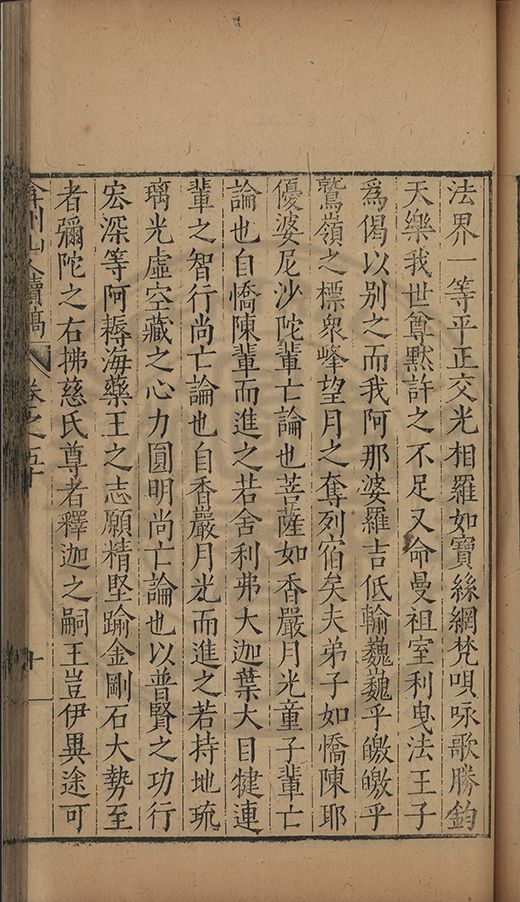 法界一等平正交光相羅如寶絲網梵唄咏歌勝鈞
天樂我世尊默許之不足又命曼祖室利曳法王子
爲偈以别之而我阿那婆羅吉低輸巍巍乎皦皦乎
鷲嶺之標衆峰望月之奪列宿矣夫弟子如憍陳耶
優婆尼沙陀輩亡論也菩薩如香嚴月光童子輩亡
論也自憍陳輩而進之若舍利弗大迦葉大目犍連
輩之智行尚亡論也自香嚴月光而進之若持地琉
璃光虛空藏之心力圓明尚亡論也以普賢之功行
宏深等阿耨海藥王之志願精堅踰金剛石大勢至
者彌陀之右拂慈氏尊者釋迦之嗣王豈伊異途可
弇州山人續稿 卷之五十 十